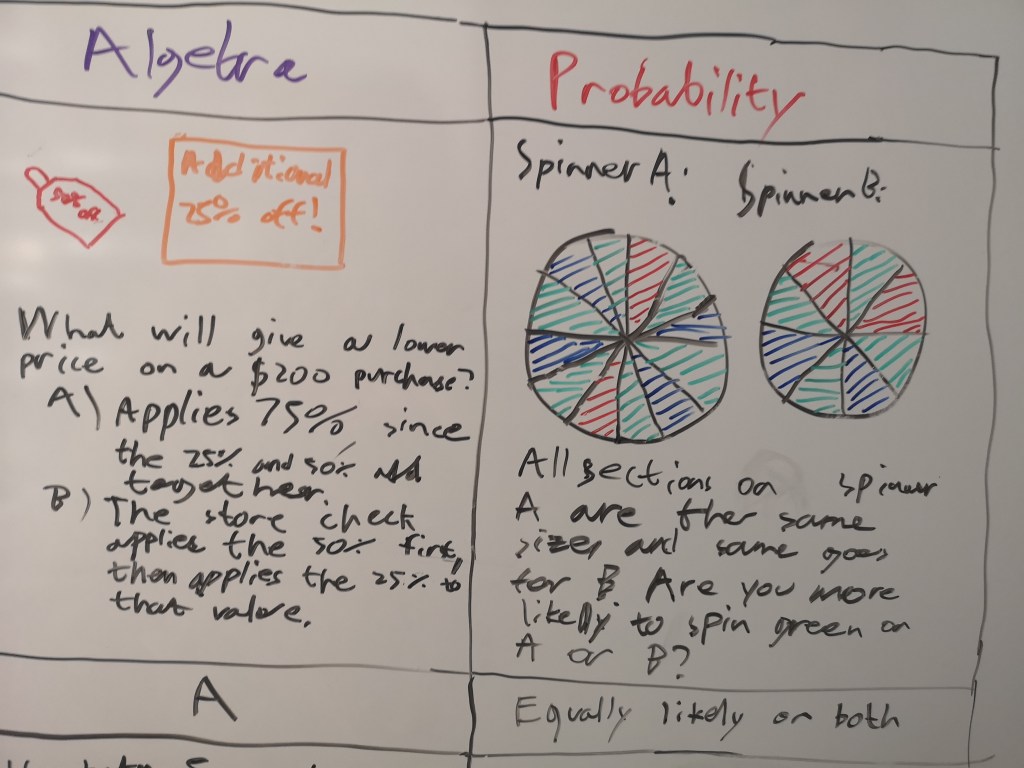 Algebra
50% off
Additional
25% off!
What will give a lower
price on a $200 purchase?
A) Applies 75% since
the 25% and 50% add
together.
B) The store check
applies the 50% first,
then applies the 25% to
that value.
A
Probability
Spinner A: Spinner B:
All sections on spinner
A are ther same
sizes and same goes
for B Are you more
likely to spin green on
A or B?
Equally likely on both